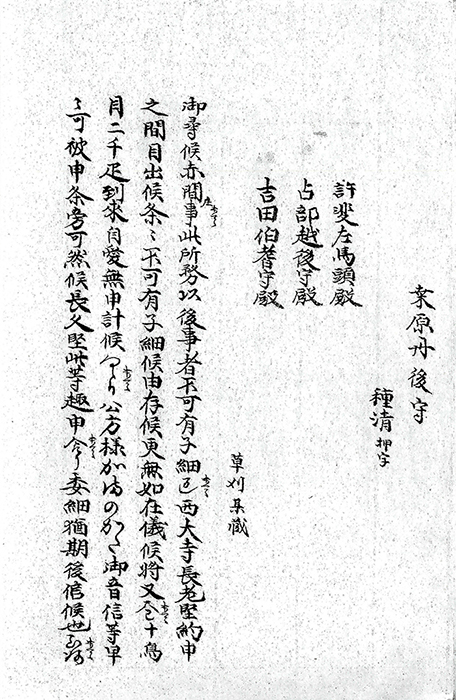 桒原丹後守
種清 押字
許斐左馬頭殿
占部越後守殿
吉田伯耆守殿
草刈某蔵
御尋候赤間庄事此所務以後事者不可有子細西大寺長老堅約申
之間目出候条々不可有子細候由存候更無如在儀候将又十鳥
月二千疋到来自愛無申計候公方様かものかた御音信等早
々可被申条旁可然候長久堅此等趣申委細猶期後信候也